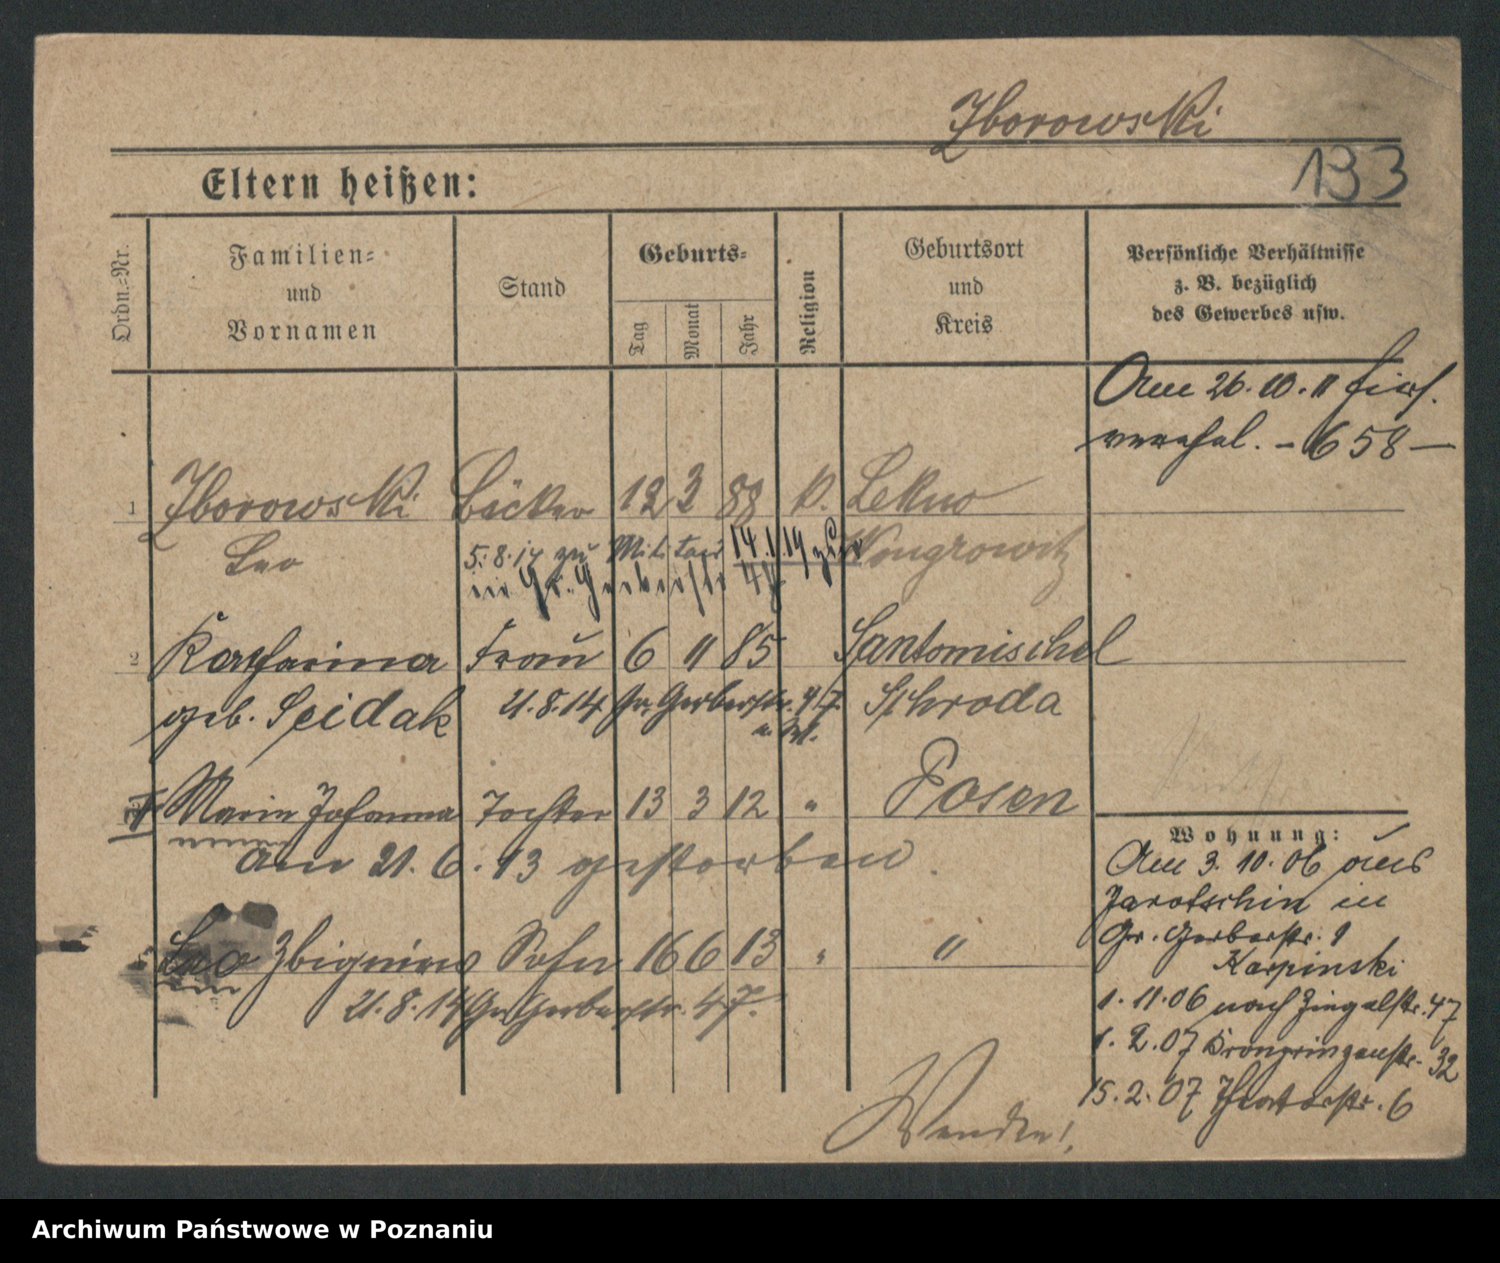 Zborowski
133
Eltern heißen:
Ordn.-Nr.
Familien-
und
Vornamen
Stand
Geburts-
Tag
Monat
Jahr
Religion
Geburtsort
und
Kreis
Persönliche Verhältnisse
z. B. bezüglich
des Gewerbes usw.
Am 26.10.11 hier
verehel. - 658 -
1 Zborowski Bäcker 12 3 88 k. Lekno
Leo Wongrowitz
5.8.14 zu Militär 14.1.19 zur
in Gr. Gerberstr 47
2 Katharina Frau 6 11 85 Santomischel
geb. Seidak Schroda
21.8.14 Gr. Gerberstr. 47
Marie Johanna Tochter 13 3 12 " Posen
am 21.6.13 gestorben.
Leo Zbigniew Sohn 16 6 13 " "
21.8.14 Gr. Gerberstr. 47.
Wohnung:
Am 3.10.06 aus
Jarotschin in
Gr. Gerberstr. 9
Karpinski
1.11.06 nach Ziegelstr. 47
1.2.07 Kronprinzenstr. 32
15.2.07 Theaterstr. 6
Wenden!
Archiwum Państwowe w Poznaniu